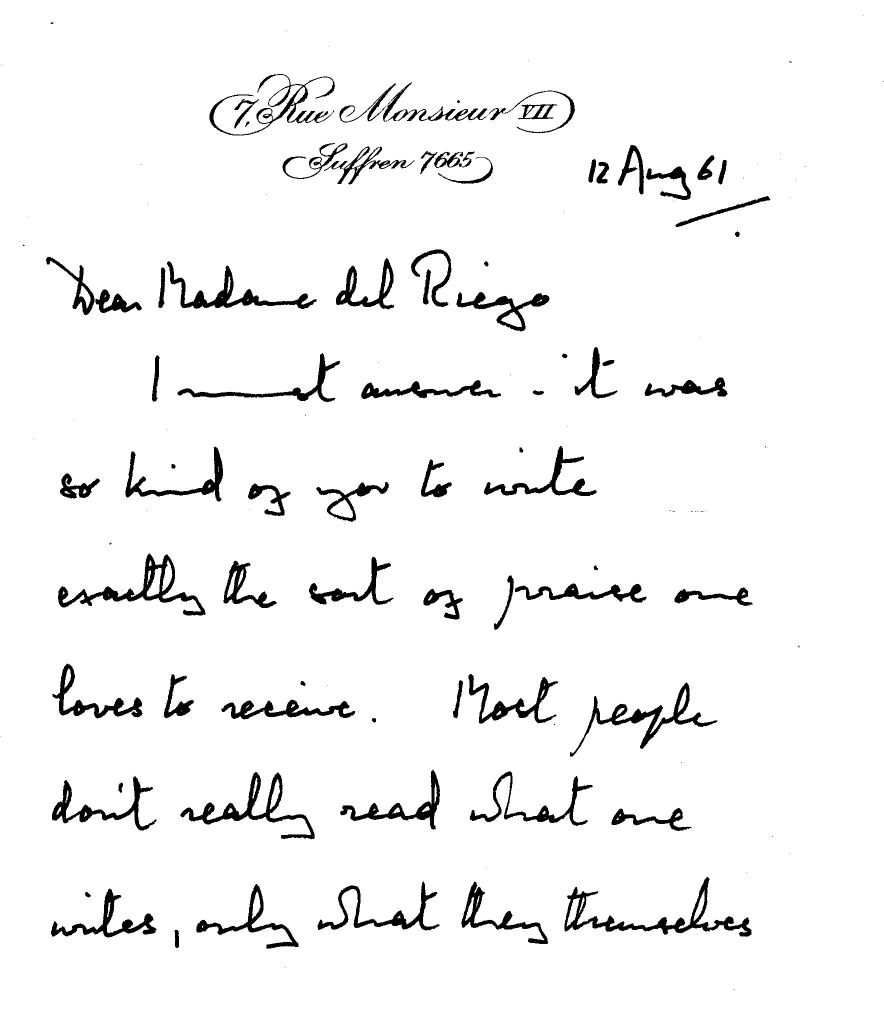 7, Rue Monsieur VII
Suffren 7665
12 Aug 61
Dear Madame del Riego
I must answer - it was
so kind of you to write
exactly the sort of praise one
loves to receive. Most people
don't really read what one
writes, only what they themselves